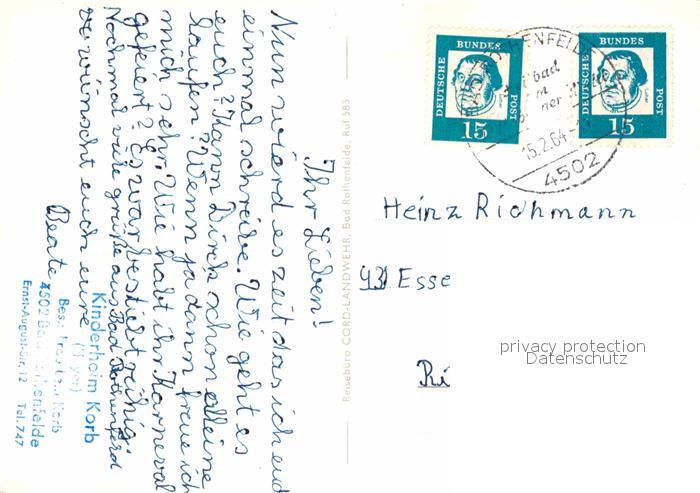 Ihr Lieben!
Nun wierd es zeit das ich eud
einmal schreibe. Wie geht es
euch? Kann Dirck schon alleine
laufen? Wenn ja dann freue ich
mich sehr. Wie habt ihr Karneval
gefeiert? Es war bestiebt ruhig.
Nochmal viele grüße aus Bad Rothenferd
verwünscht euch eure
Beate
Kinderheim Korb
4502 Bad Rothenfelde
Ernst-August-Str. 12 Tel. 747
Reisebüro CORD-LANDWEHR, Bad Rothenfelde, Ruf 585
DEUTSCHE BUNDES POST
15
DEUTSCHE BUNDES POST
15
15.2.64
4502
Heinz Richmann
431 Esse
Ri
privacy protection
Datenschutz